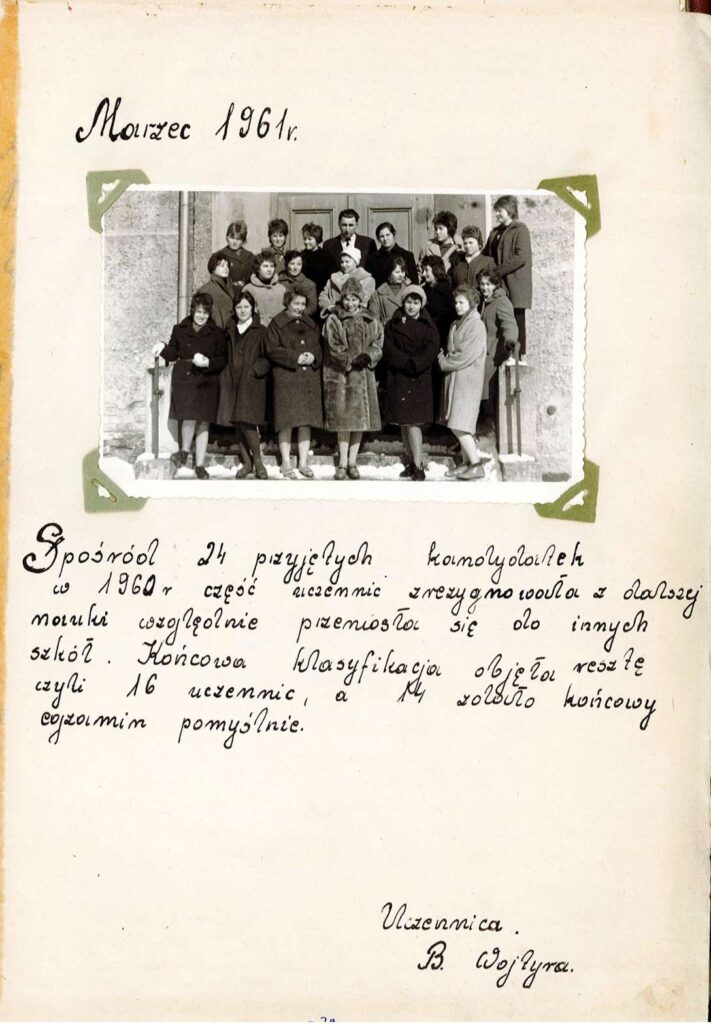 Marzec 1961r.
Spośród 24 przyjętych kandydatek
w 1960r część uczennic zrezygnowała z dalszej
nauki względnie przeniosła się do innych
szkół. Końcowa klasyfikacja objęła resztę
czyli 16 uczennic, a 14 zdało końcowy
egzamin pomyślnie.
Uczennica.
B. Wojtyra.